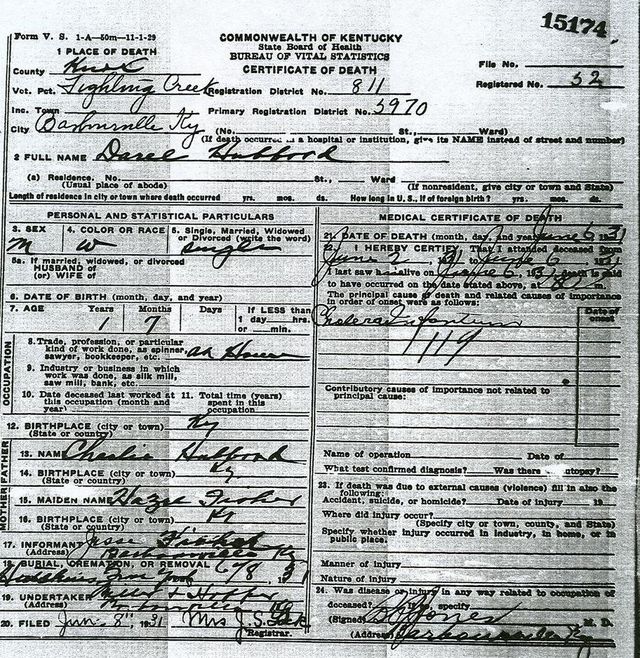 15174
Form V. S. 1-A—50m—11-1-29
COMMONWEALTH OF KENTUCKY
State Board of Health
BUREAU OF VITAL STATISTICS
CERTIFICATE OF DEATH
1 PLACE OF DEATH
County Knox
File No.
Registered No. 52
Vot. Pct. Fighting Creek Registration District No. 811
Inc. Town Primary Registration District No. 5970
City Barbourville Ky (No. St., Ward)
(If death occurred in a hospital or institution, give its NAME instead of street and number)
2 FULL NAME Hubbard
(a) Residence. No. St., Ward
(Usual place of abode) (If nonresident, give city or town and State)
Length of residence in city or town where death occurred yrs. mos. ds. How long in U. S., if of foreign birth? yrs. mos. ds.
PERSONAL AND STATISTICAL PARTICULARS
3. SEX 4. COLOR OR RACE 5. Single, Married, Widowed
or Divorced (write the word)
M W Single
5a. If married, widowed, or divorced
HUSBAND of
(or) WIFE of
6. DATE OF BIRTH (month, day, and year)
7. AGE Years Months Days If LESS than
1 day hrs.
or min.
1 7
OCCUPATION
8. Trade, profession, or particular
kind of work done, as spinner,
sawyer, bookkeeper, etc. at Home
9. Industry or business in which
work was done, as silk mill,
saw mill, bank, etc.
10. Date deceased last worked at
this occupation (month and
year)
11. Total time (years)
spent in this
occupation
12. BIRTHPLACE (city or town) Ky
(State or country)
FATHER
13. NAME Charlie Hubbard
14. BIRTHPLACE (city or town) Ky
(State or country)
MOTHER
15. MAIDEN NAME Hazel
16. BIRTHPLACE (city or town) Ky
(State or country)
17. INFORMANT
(Address) Barbourville Ky
18. BURIAL, CREMATION, OR REMOVAL 6/8 31
19. UNDERTAKER & Hopper
(Address)
20. FILED Jun 8" 1931 Mrs J. S.
Registrar.
MEDICAL CERTIFICATE OF DEATH
21. DATE OF DEATH (month, day, and year) June 6 1931
22. I HEREBY CERTIFY, That I attended deceased from
June 2, 1931 to June 6, 1931
I last saw alive on June 6, 1931 death is said
to have occurred on the date stated above, at m.
The principal cause of death and related causes of importance
in order of onset were as follows:
Date of
onset
Cholera Infantum
119
Contributory causes of importance not related to
principal cause:
Name of operation Date of
What test confirmed diagnosis? Was there autopsy?
23. If death was due to external causes (violence) fill in also the
following:
Accident, suicide, or homicide? Date of injury 19
Where did injury occur?
(Specify city or town, county, and State)
Specify whether injury occurred in industry, in home, or in
public place.
Manner of injury
Nature of injury
24. Was disease or injury in any way related to occupation of
deceased? If so, specify
(Signed) Jones M. D.
(Address) Barbourville Ky